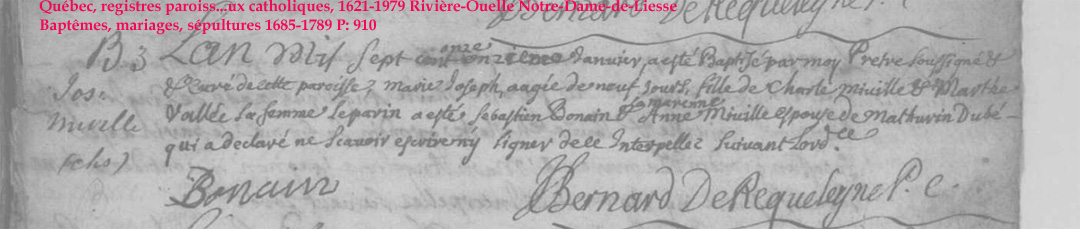 Québec, registres paroiss...ux catholiques, 1621-1979 Rivière-Ouelle Notre-Dame-de-Liesse
Baptêmes, mariages, sépultures 1685-1789 P: 910
Bernard DeRequeleyne P. c.
B 3 Lan Mil sept cent onze onzieme Januier, a esté Baptisé par moy Pretre soussigné &
Jos. & curé de cette paroisse, marie Joseph, aagée de neuf jours, fille de Charle miuille & Marthe
Miville Vallée sa femme le parin a esté Sebastien Bonain la mareinne Anne Miuille espouse de Mathurin Dubé
qui a declaré ne scauoir escrire ny signer de ce Interpellez suiuant Lord.ce
(chs)
Bonain Bernard DeRequeleyne P. c.